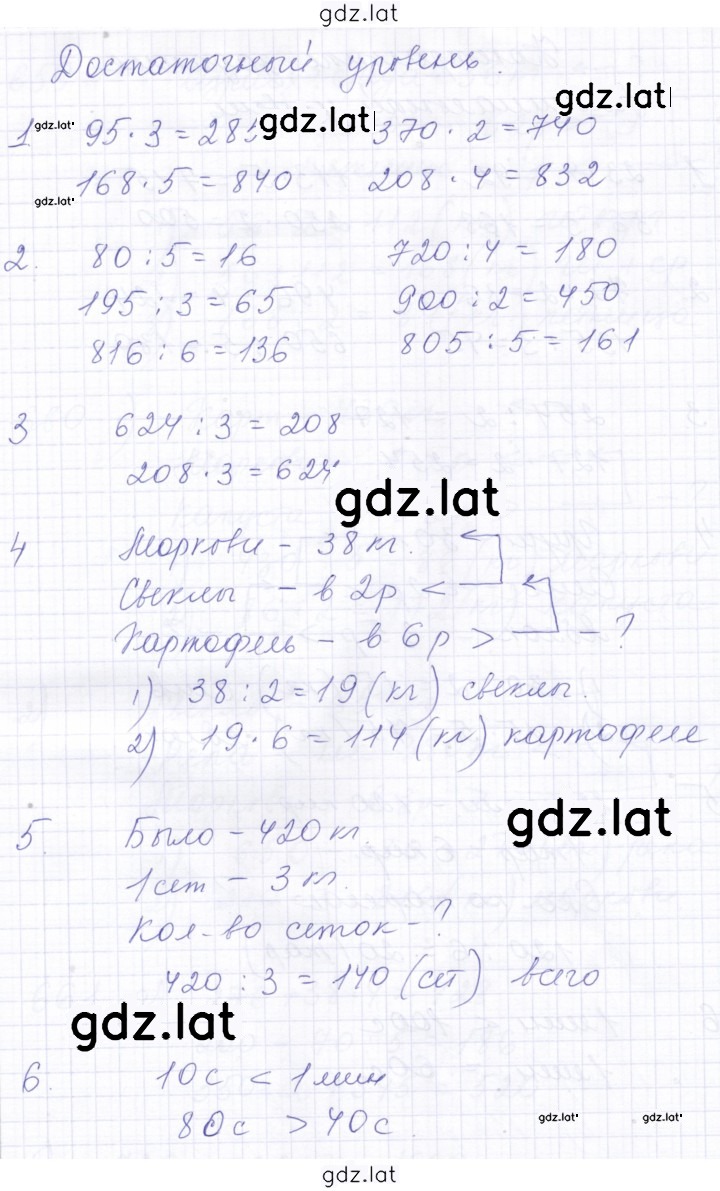 gdz.lat
Достаточный уровень.
gdz.lat
1 gdz.lat 95 · 3 = 285 gdz.lat 370 · 2 = 740
gdz.lat 168 · 5 = 840 208 · 4 = 832
2. 80 : 5 = 16 720 : 4 = 180
195 : 3 = 65 900 : 2 = 450
816 : 6 = 136 805 : 5 = 161
3 624 : 3 = 208
208 · 3 = 624
gdz.lat
4 Моркови - 38 кг.
Свеклы - в 2р <
Картофель - в 6р > - ?
1) 38 : 2 = 19 (кг) свеклы.
2) 19 · 6 = 114 (кг) картофеля
gdz.lat
5. Было - 420 кг
1 сет - 3 кг.
Кол-во сеток - ?
420 : 3 = 140 (сет) всего
gdz.lat
6. 10 с < 1 мин
80 с > 40 с
gdz.lat gdz.lat
gdz.lat